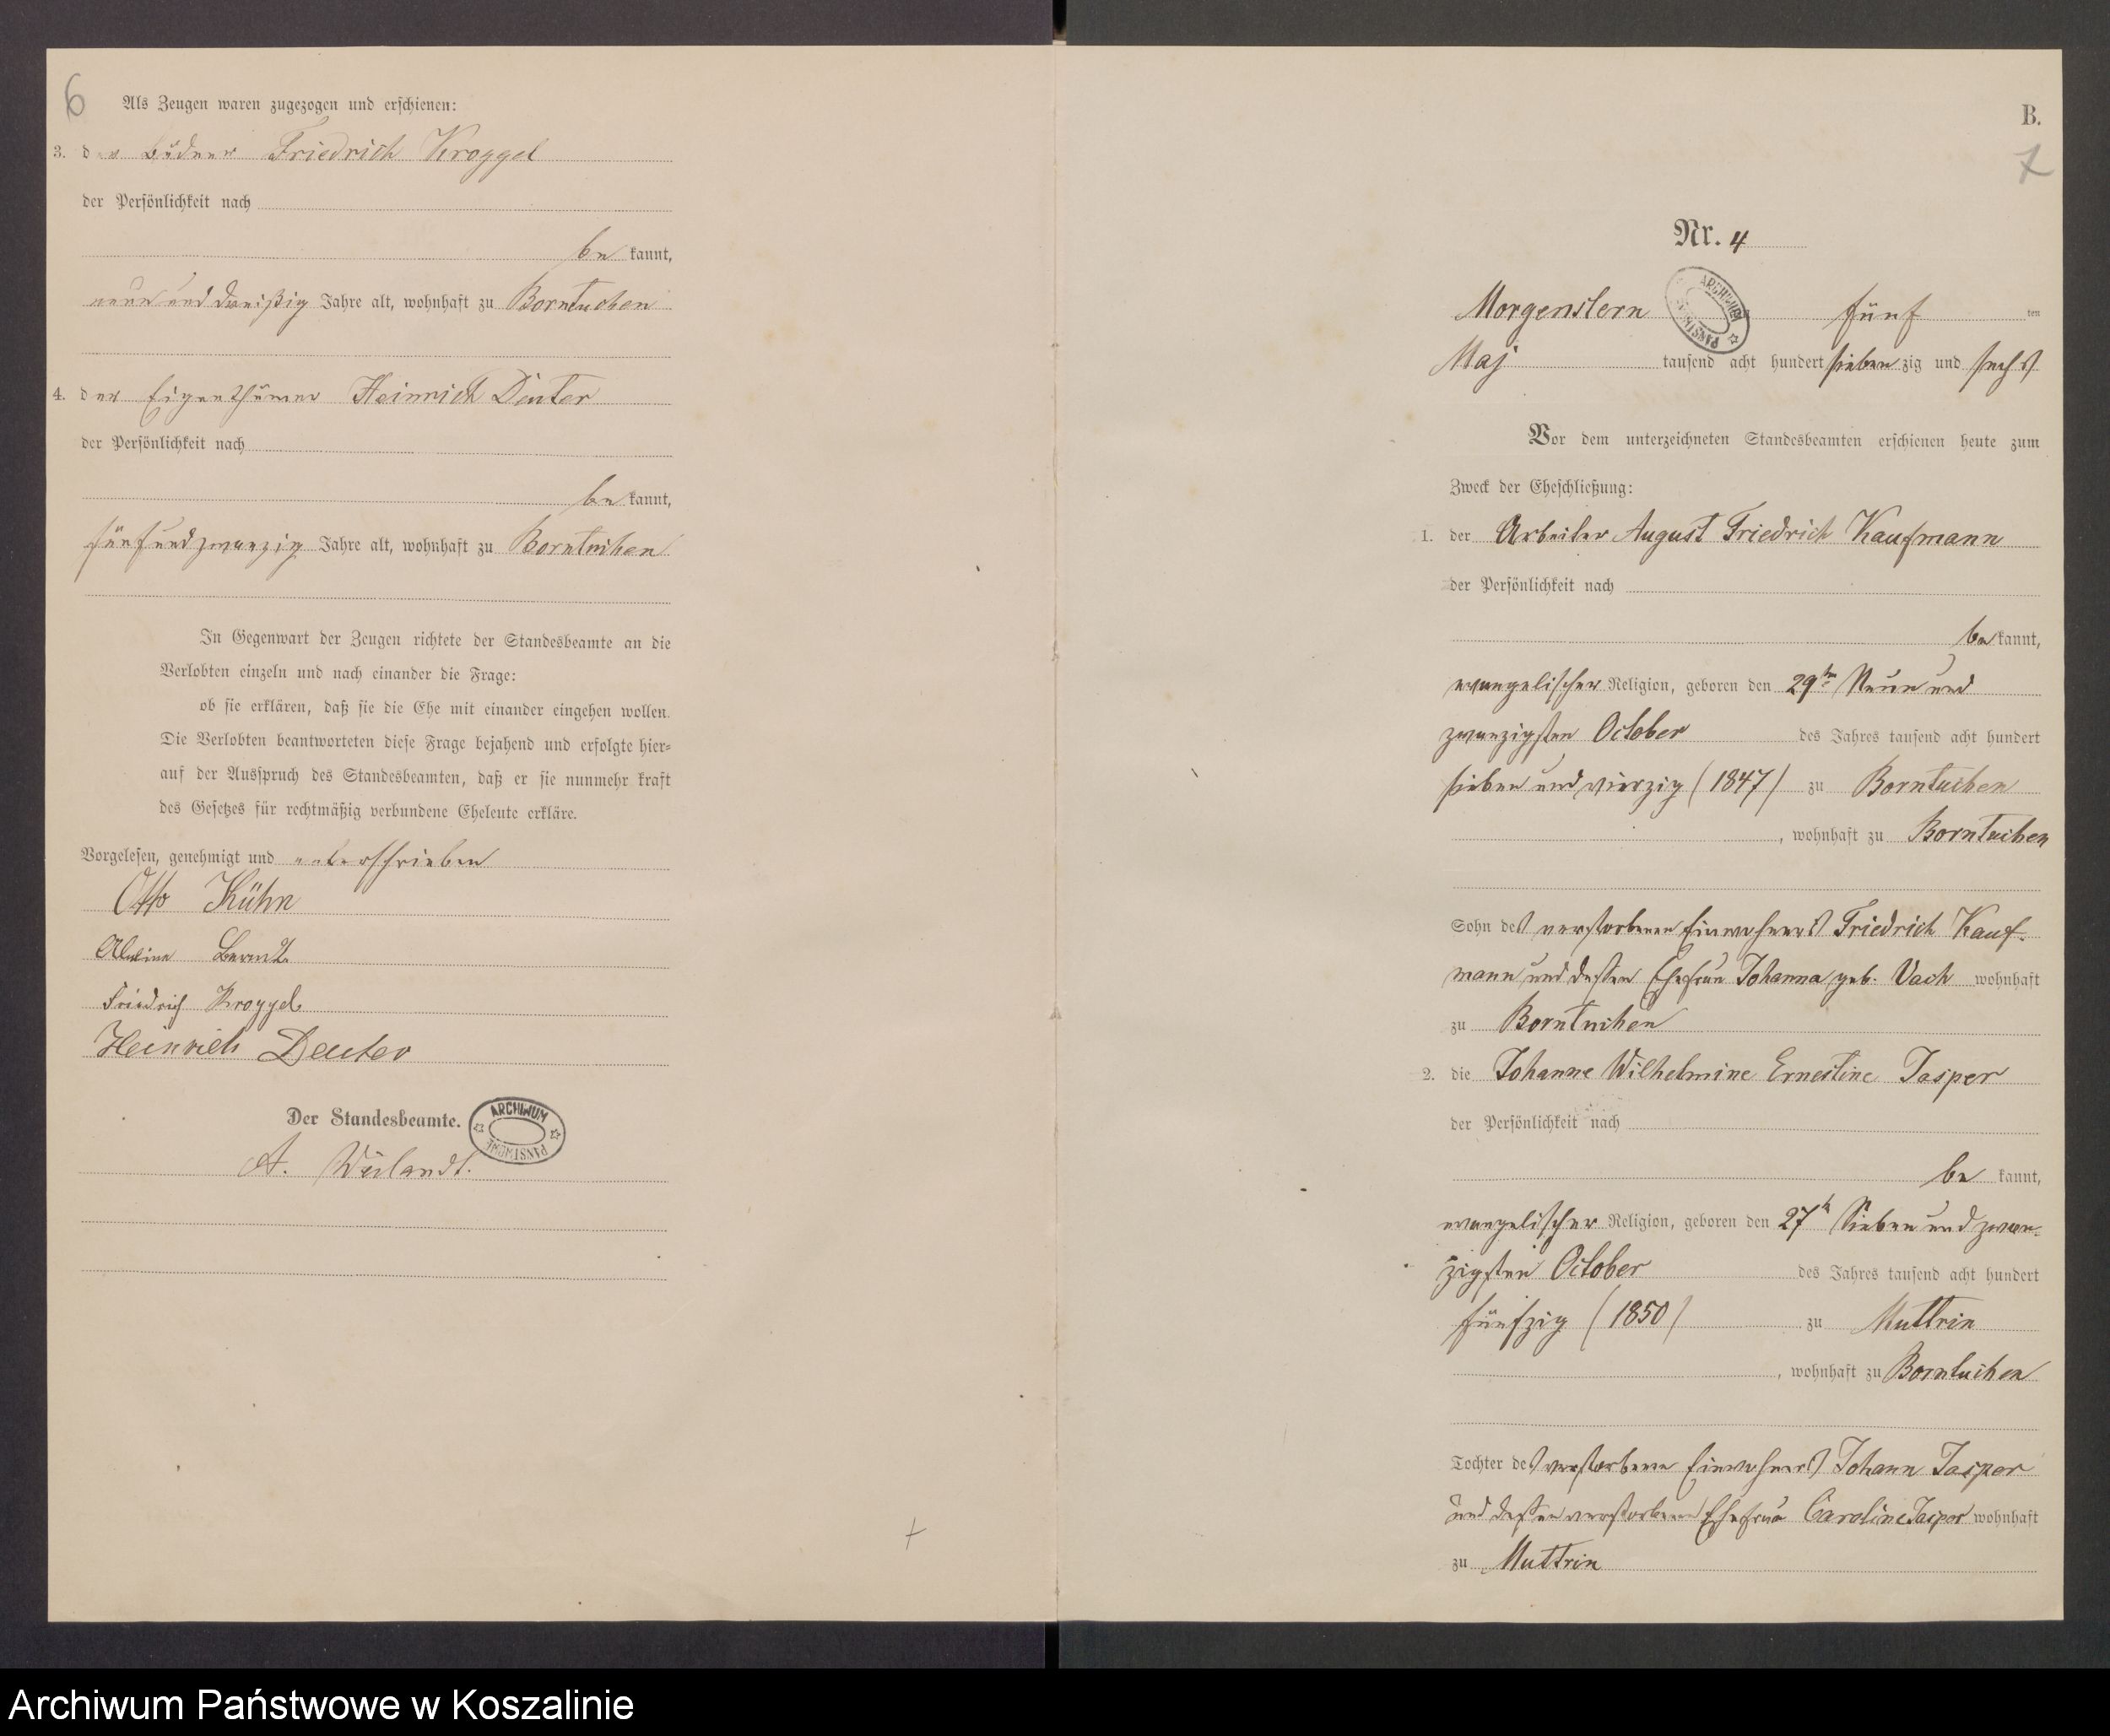 6
Als Zeugen waren zugezogen und erschienen:
3. der Büdner Friedrich Kroggel
der Persönlichkeit nach
be kannt,
neun und dreißig Jahre alt, wohnhaft zu Borntuchen
4. der Eigenthümer Heinrich Deuter
der Persönlichkeit nach
be kannt,
fünfundzwanzig Jahre alt, wohnhaft zu Borntuchen
In Gegenwart der Zeugen richtete der Standesbeamte an die
Verlobten einzeln und nach einander die Frage:
ob sie erklären, daß sie die Ehe mit einander eingehen wollen.
Die Verlobten beantworteten diese Frage bejahend und erfolgte hier=
auf der Ausspruch des Standesbeamten, daß er sie nunmehr kraft
des Gesetzes für rechtmäßig verbundene Eheleute erkläre.
Vorgelesen, genehmigt und unterschrieben
Otto Kühn
Friedrich Kroggel
Heinrich Deuter
Der Standesbeamte.
ARCHIWUM PAŃSTWOWE
A. Weilandt.
B.
7
Nr. 4
ARCHIWUM PAŃSTWOWE
Morgenstern fünf ten
Maj tausend acht hundert sieben zig und sechs
Vor dem unterzeichneten Standesbeamten erschienen heute zum
Zweck der Eheschließung:
1. der Arbeiter August Friedrich Kaufmann
der Persönlichkeit nach
be kannt,
evangelischer Religion, geboren den 29ten Neun und
zwanzigsten October des Jahres tausend acht hundert
sieben und vierzig (1847) zu Borntuchen
, wohnhaft zu Borntuchen
Sohn des verstorbenen Einwohners Friedrich Kauf-
mann und dessen Ehefrau Johanna geb. Vach wohnhaft
zu Borntuchen
2. die Johanne Wilhelmine Ernestine Jasper
der Persönlichkeit nach
be kannt,
evangelischer Religion, geboren den 27t Sieben und zwan-
zigsten October des Jahres tausend acht hundert
fünfzig (1850) zu Muttrin
, wohnhaft zu Borntuchen
Tochter des verstorbenen Einwohners Johann Jasper
und dessen verstorbenen Ehefrau Caroline Jasper wohnhaft
zu Muttrin
Archiwum Państwowe w Koszalinie